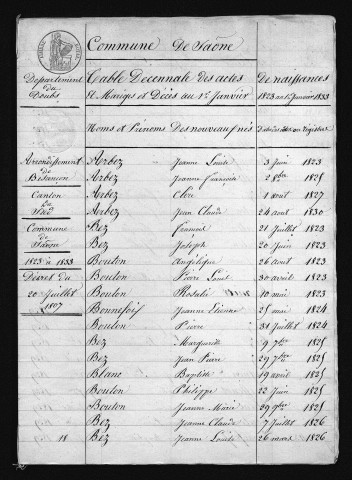 Commune De Saône
Departement du Doubs
Table Decennale des actes De naissances
Et Mariges et Décès au 1er Janvier 1823 au 1er Janvier 1833
Noms et Prénoms Des nouveaux nés
Arrondissement de Besançon
Canton du
Commune de Saône
1823 à 1833
Décret du 20 Juillet 1807
Arbez Jeanne Louise 3 Juin 1823
Arbez Jeanne Francoise 2 8bre 1825
Arbez Clére 1 aout 1827
Arbez Jean Claude 24 aout 1830
Bez François 21 Juillet 1823
Bez Joseph 20 Juin 1823
Bouton Angelique 26 aout 1823
Bouton Pierre Louis 30 avril 1823
Bouton Rosalie 10 mai 1823
Bonnefoij Jeanne Etienne 25 mai 1824
Bouton Pierre 31 Juillet 1824
Bez Marguerite 9 7bre 1825
Bez Jean Pierre 29 7bre 1825
Blanc Baptiste 19 avril 1825
Bouton Philippe 22 Juin 1825
Bouton Jeanne Marie 29 9bre 1825
Bez Jeanne Claude 7 Juillet 1826
18 Bez Jeanne Louise 26 mars 1826